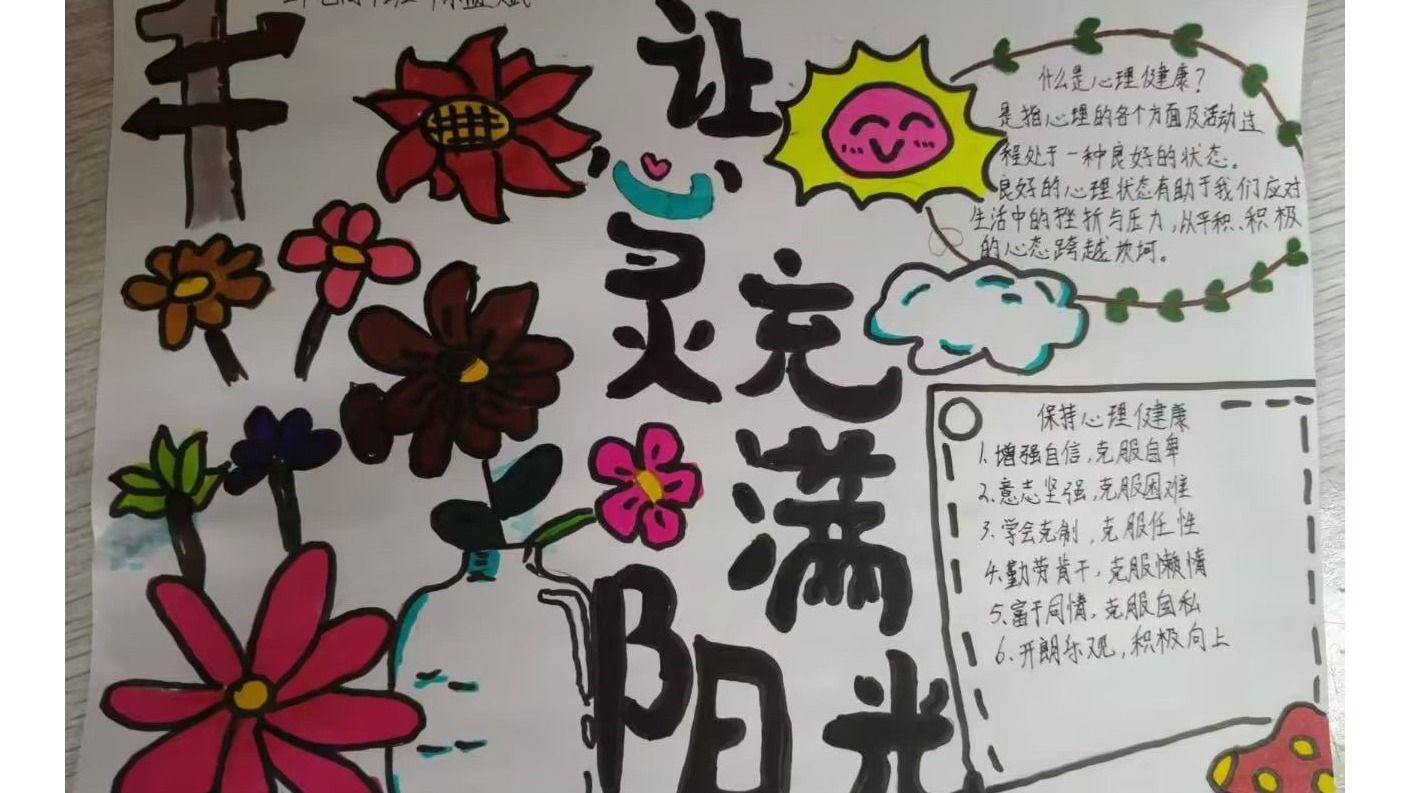 让心灵充满阳光
什么是心理健康?
是指心理的各个方面及活动过
程处于一种良好的状态。
良好的心理状态有助于我们应对
生活中的挫折与压力,从平积、积极
的心态跨越坎坷。
保持心理健康
1、增强自信,克服自卑
2、意志坚强,克服困难
3、学会克制,克服任性
4、勤劳肯干,克服懒惰
5、富于同情,克服自私
6、开朗乐观,积极向上